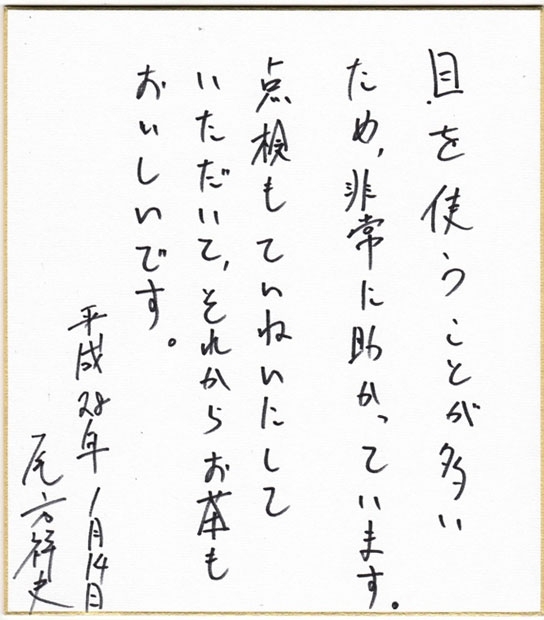 目を使うことが多い
ため,非常に助かっています。
点検もていねいにして
いただいて,それからお茶も
おいしいです。
平成28年1月14日
尾方祥史